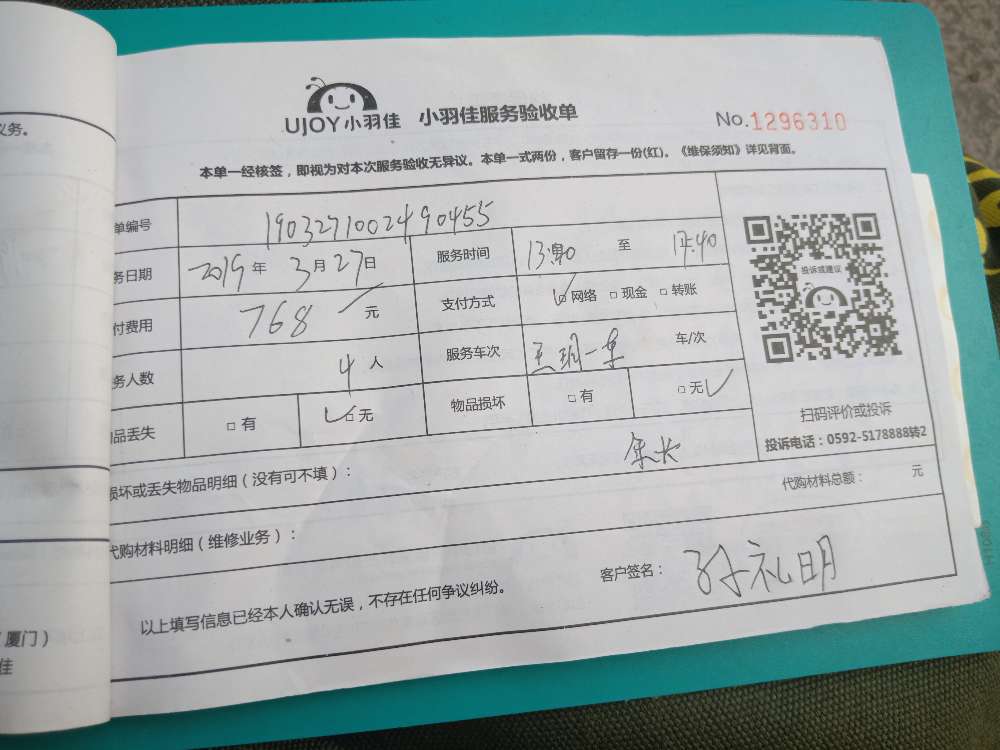 义务。
（厦门）
佳
UJOY小羽佳 小羽佳服务验收单 No.1296310
本单一经核签，即视为对本次服务验收无异议。本单一式两份，客户留存一份(红)。《维保须知》详见背面。
单编号 1903271002490455
务日期 2019年3月27日 服务时间 至 17:40
付费用 768元 支付方式 ☑网络 □现金 □转账
务人数 4人 服务车次 一车 车/次
品丢失 □有 ☑无 物品损坏 □有 □无✓
投诉或建议
扫码评价或投诉
投诉电话：0592-5178888转2
损坏或丢失物品明细（没有可不填）：
代购材料总额： 元
代购材料明细（维修业务）：
客户签名：孙礼明
以上填写信息已经本人确认无误，不存在任何争议纠纷。